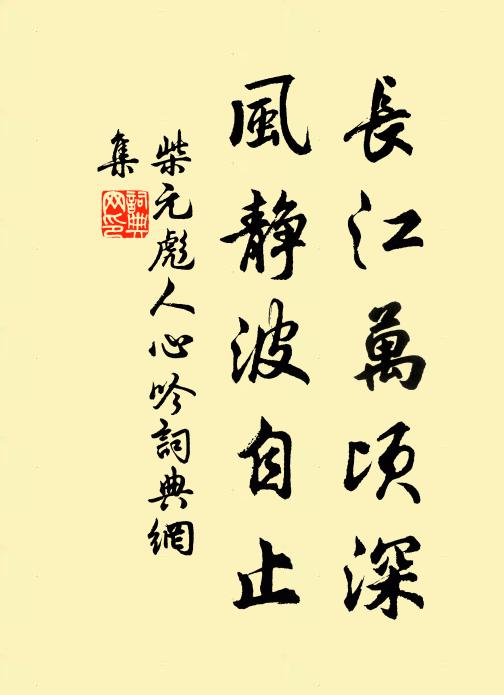 長江萬頃深
風静波自止
柴元彪人心吟詞典網
集
詞典
网印